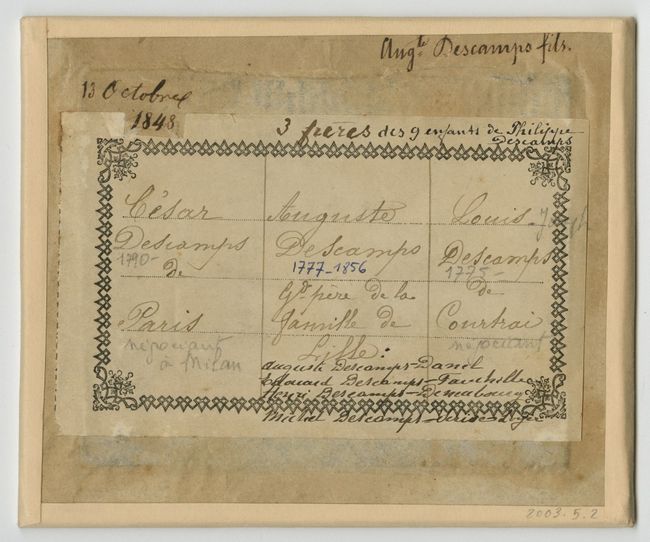 Augte Descamps fils.
13 Octobre
1848
3 frères des 9 enfants de Philippe
Descamps
César
Descamps
1790-
de
Paris
négociant
à Milan
Auguste
Descamps
1777-1856
Gd père de la
famille de
Lille:
Auguste Descamps-Danel
Edouard Descamps-Fauchille
Henri Descamps-
Michel Descamps-
Louis-Joseph
Descamps
1775-
de
Courtrai
négociant
2003.5.2